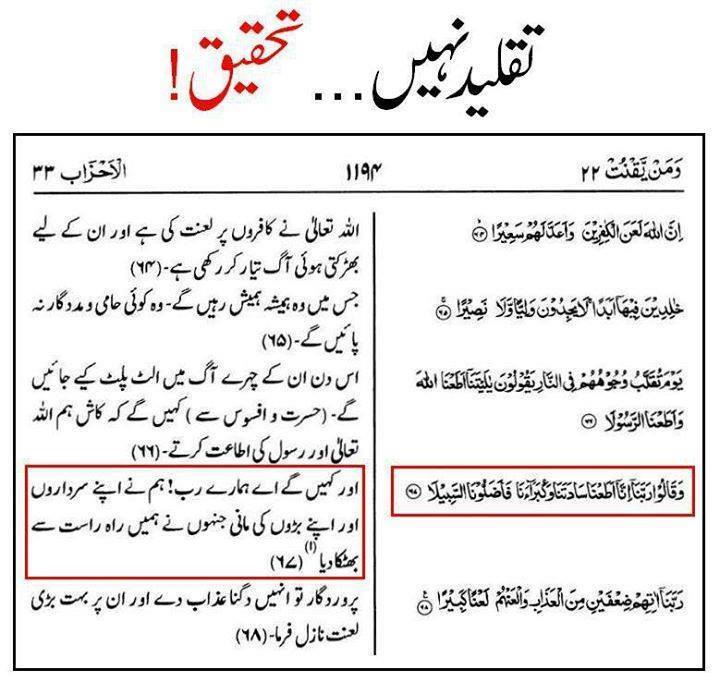 تقلید نہیں... تحقیق!
وَمَنْ يَّقْنُتْ ۲۲
۱۱۹۴
الْاَحْزَاب ۳۳
اِنَّ اللّٰهَ لَعَنَ الْكٰفِرِيْنَ وَاَعَدَّ لَهُمْ سَعِيْرًا ۙ﴿۶۴﴾
خٰلِدِيْنَ فِيْهَاۤ اَبَدًا ۚ لَا يَجِدُوْنَ وَلِيًّا وَّلَا نَصِيْرًا ۚ﴿۶۵﴾
يَوْمَ تُقَلَّبُ وُجُوْهُهُمْ فِي النَّارِ يَقُوْلُوْنَ يٰلَيْتَنَاۤ اَطَعْنَا اللّٰهَ
وَاَطَعْنَا الرَّسُوْلَا ﴿۶۶﴾
وَقَالُوْا رَبَّنَاۤ اِنَّاۤ اَطَعْنَا سَادَتَنَا وَكُبَرَآءَنَا فَاَضَلُّوْنَا السَّبِيْلَا ﴿۶۷﴾
رَبَّنَاۤ اٰتِهِمْ ضِعْفَيْنِ مِنَ الْعَذَابِ وَالْعَنْهُمْ لَعْنًا كَبِيْرًا ﴿۶۸﴾
اللہ تعالیٰ نے کافروں پر لعنت کی ہے اور ان کے لیے
بھڑکتی ہوئی آگ تیار کر رکھی ہے۔ (۶۴)
جس میں وہ ہمیشہ ہمیش رہیں گے۔ وہ کوئی حامی و مددگار نہ
پائیں گے۔ (۶۵)
اس دن ان کے چہرے آگ میں الٹ پلٹ کیے جائیں
گے۔ (حسرت و افسوس سے) کہیں گے کہ کاش ہم اللہ
تعالیٰ اور رسول کی اطاعت کرتے۔ (۶۶)
اور کہیں گے اے ہمارے رب! ہم نے اپنے سرداروں
اور اپنے بڑوں کی مانی جنہوں نے ہمیں راہ راست سے
بھٹکا دیا (۱) (۶۷)
پروردگار تو انہیں دگنا عذاب دے اور ان پر بہت بڑی
لعنت نازل فرما۔ (۶۸)